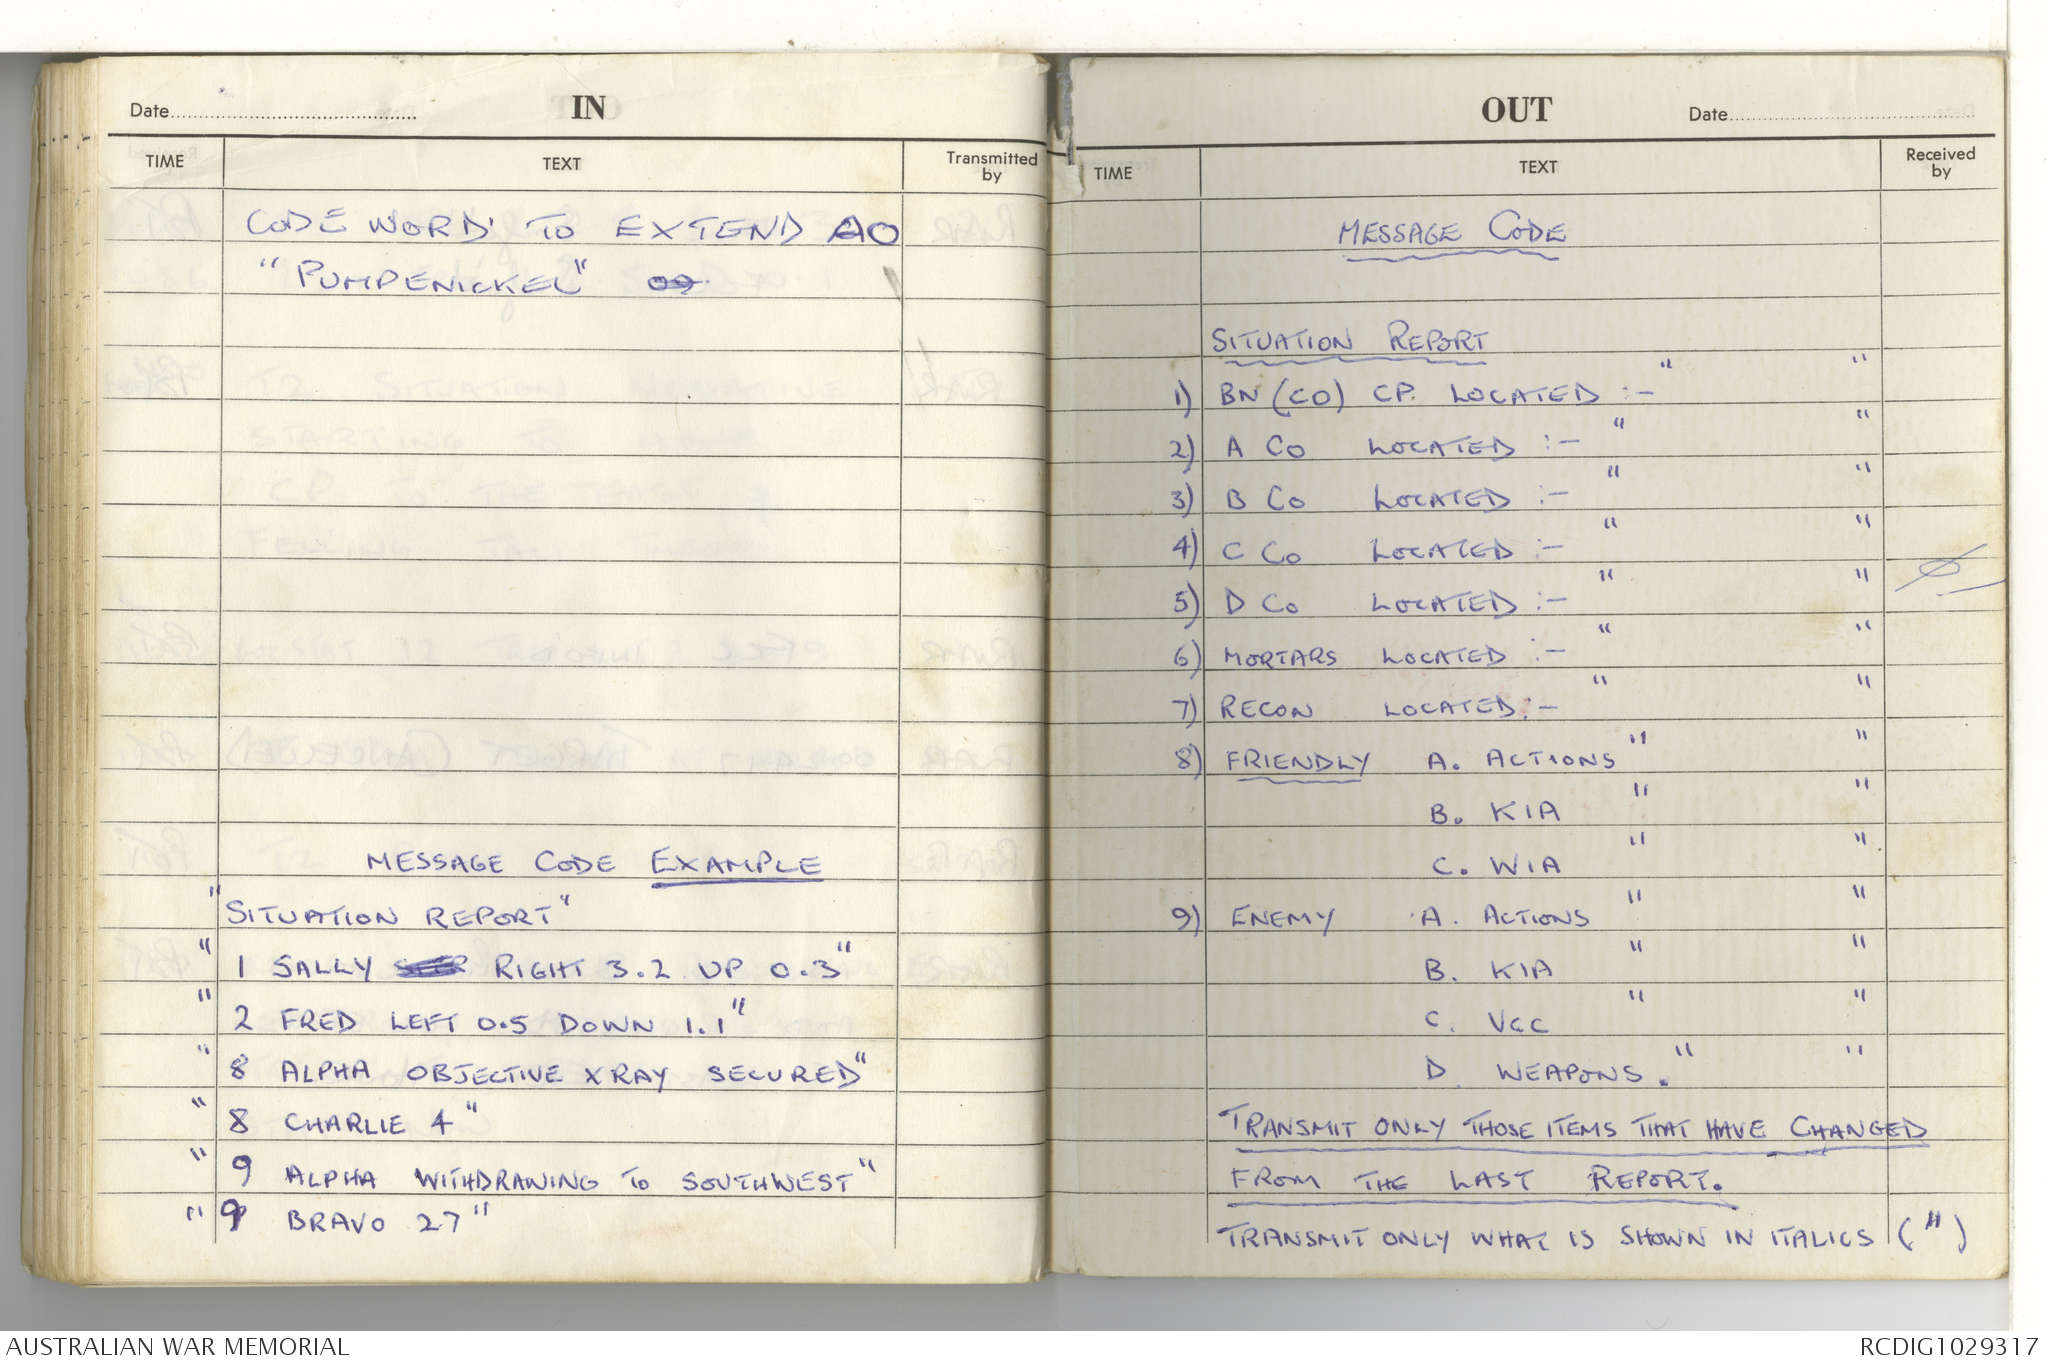 Date IN
TIME TEXT Transmitted by
CODE WORD TO EXTEND AO
"PUMPENICKEL"
MESSAGE CODE EXAMPLE
"SITUATION REPORT"
" 1 SALLY RIGHT 3.2 UP 0.3"
" 2 FRED LEFT 0.5 DOWN 1.1"
" 8 ALPHA OBJECTIVE XRAY SECURED"
" 8 CHARLIE 4"
" 9 ALPHA WITHDRAWING TO SOUTHWEST"
" 9 BRAVO 27"
OUT Date
TIME TEXT Received by
MESSAGE CODE
SITUATION REPORT
1) BN (CO) CP. LOCATED :- " "
2) A CO LOCATED :- " "
3) B CO LOCATED :- " "
4) C CO LOCATED :- " "
5) D CO LOCATED :- " "
6) MORTARS LOCATED :- " "
7) RECON LOCATED :- " "
8) FRIENDLY A. ACTIONS " "
B. KIA " "
C. WIA " "
9) ENEMY A. ACTIONS " "
B. KIA " "
C. VCC " "
D. WEAPONS. " "
TRANSMIT ONLY THOSE ITEMS THAT HAVE CHANGED
FROM THE LAST REPORT.
TRANSMIT ONLY WHAT IS SHOWN IN ITALICS (")
AUSTRALIAN WAR MEMORIAL
RCDIG1029317